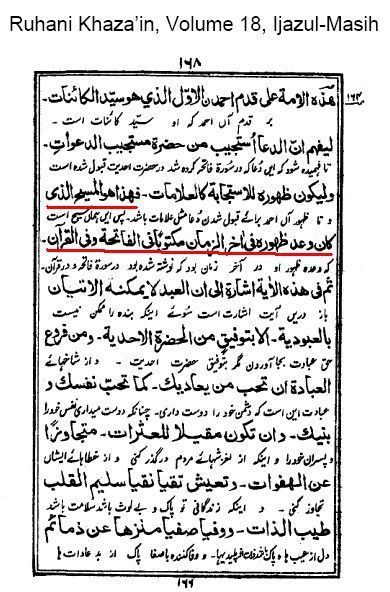 Ruhani Khaza’in, Volume 18, Ijazul-Masih
١٦٨
١٦٤ هذه الامة على قدم احمدن الاول الذي هو سيد الكائنات۔
بر قدم آں احمد کہ او سید کائنات است ۔
ليفهم ان الدعاء استجيب من حضرة مستجيب الدعوات۔
تا فہمیدہ شود کہ ایں دعا کہ در سورۃ فاتحہ کردہ شد در حضرت احدیت قبول شدہ است
وليكون ظهوره للاستجابة كالعلامات۔ فهذا هو المسيح الذي
و تا ظہور آں احمد برائے قبول شدن دعا مثل علامات باشد۔ پس ایں ہماں مسیح است
كان وعد ظهوره في اٰخر الزمان مكتوبا في الفاتحة وفي القراٰن۔
کہ وعدہ ظہور او در آخر زمان بود کہ نوشتہ شدہ بود در سورۃ فاتحہ و در قرآن۔
ثم في هذه الاٰية اشارة الى ان العبد لا يمكنه الاتيان
باز دریں آیت اشارت است سوئے اینکہ بندہ را ممکن نیست
بالعبودية۔ الا بتوفيق من الحضرة الاحدية۔ ومن فروع
حق عبادت بجا آوردن مگر بتوفیق حضرت احدیت ۔ و از شاخہائے
العبادة ان تحب من يعاديك۔ كما تحب نفسك و
عبادت این است کہ دشمن خود را دوست داری۔ چنانکہ دوست میداری نفس خود را
بنيك۔ وان تكون مقيلا للعثرات۔ متجاوزا
و پسران خود را و اینکہ از لغزشہائے مردم درگذر کنی و از خطاہائے ایشاں
عن الهفوات۔ وتعيش تقيا نقيا سليم القلب
تجاوز کنی ۔ و اینکہ زندگانی تو پاک و بے لوث باشد سلامت باشد
طيب الذات۔ ووفيا صفيا منزها عن ذمائم
دل از عیب ہا و پاک و وفا کنندہ با صفا پاک از بد عادات ہا
١٦٦